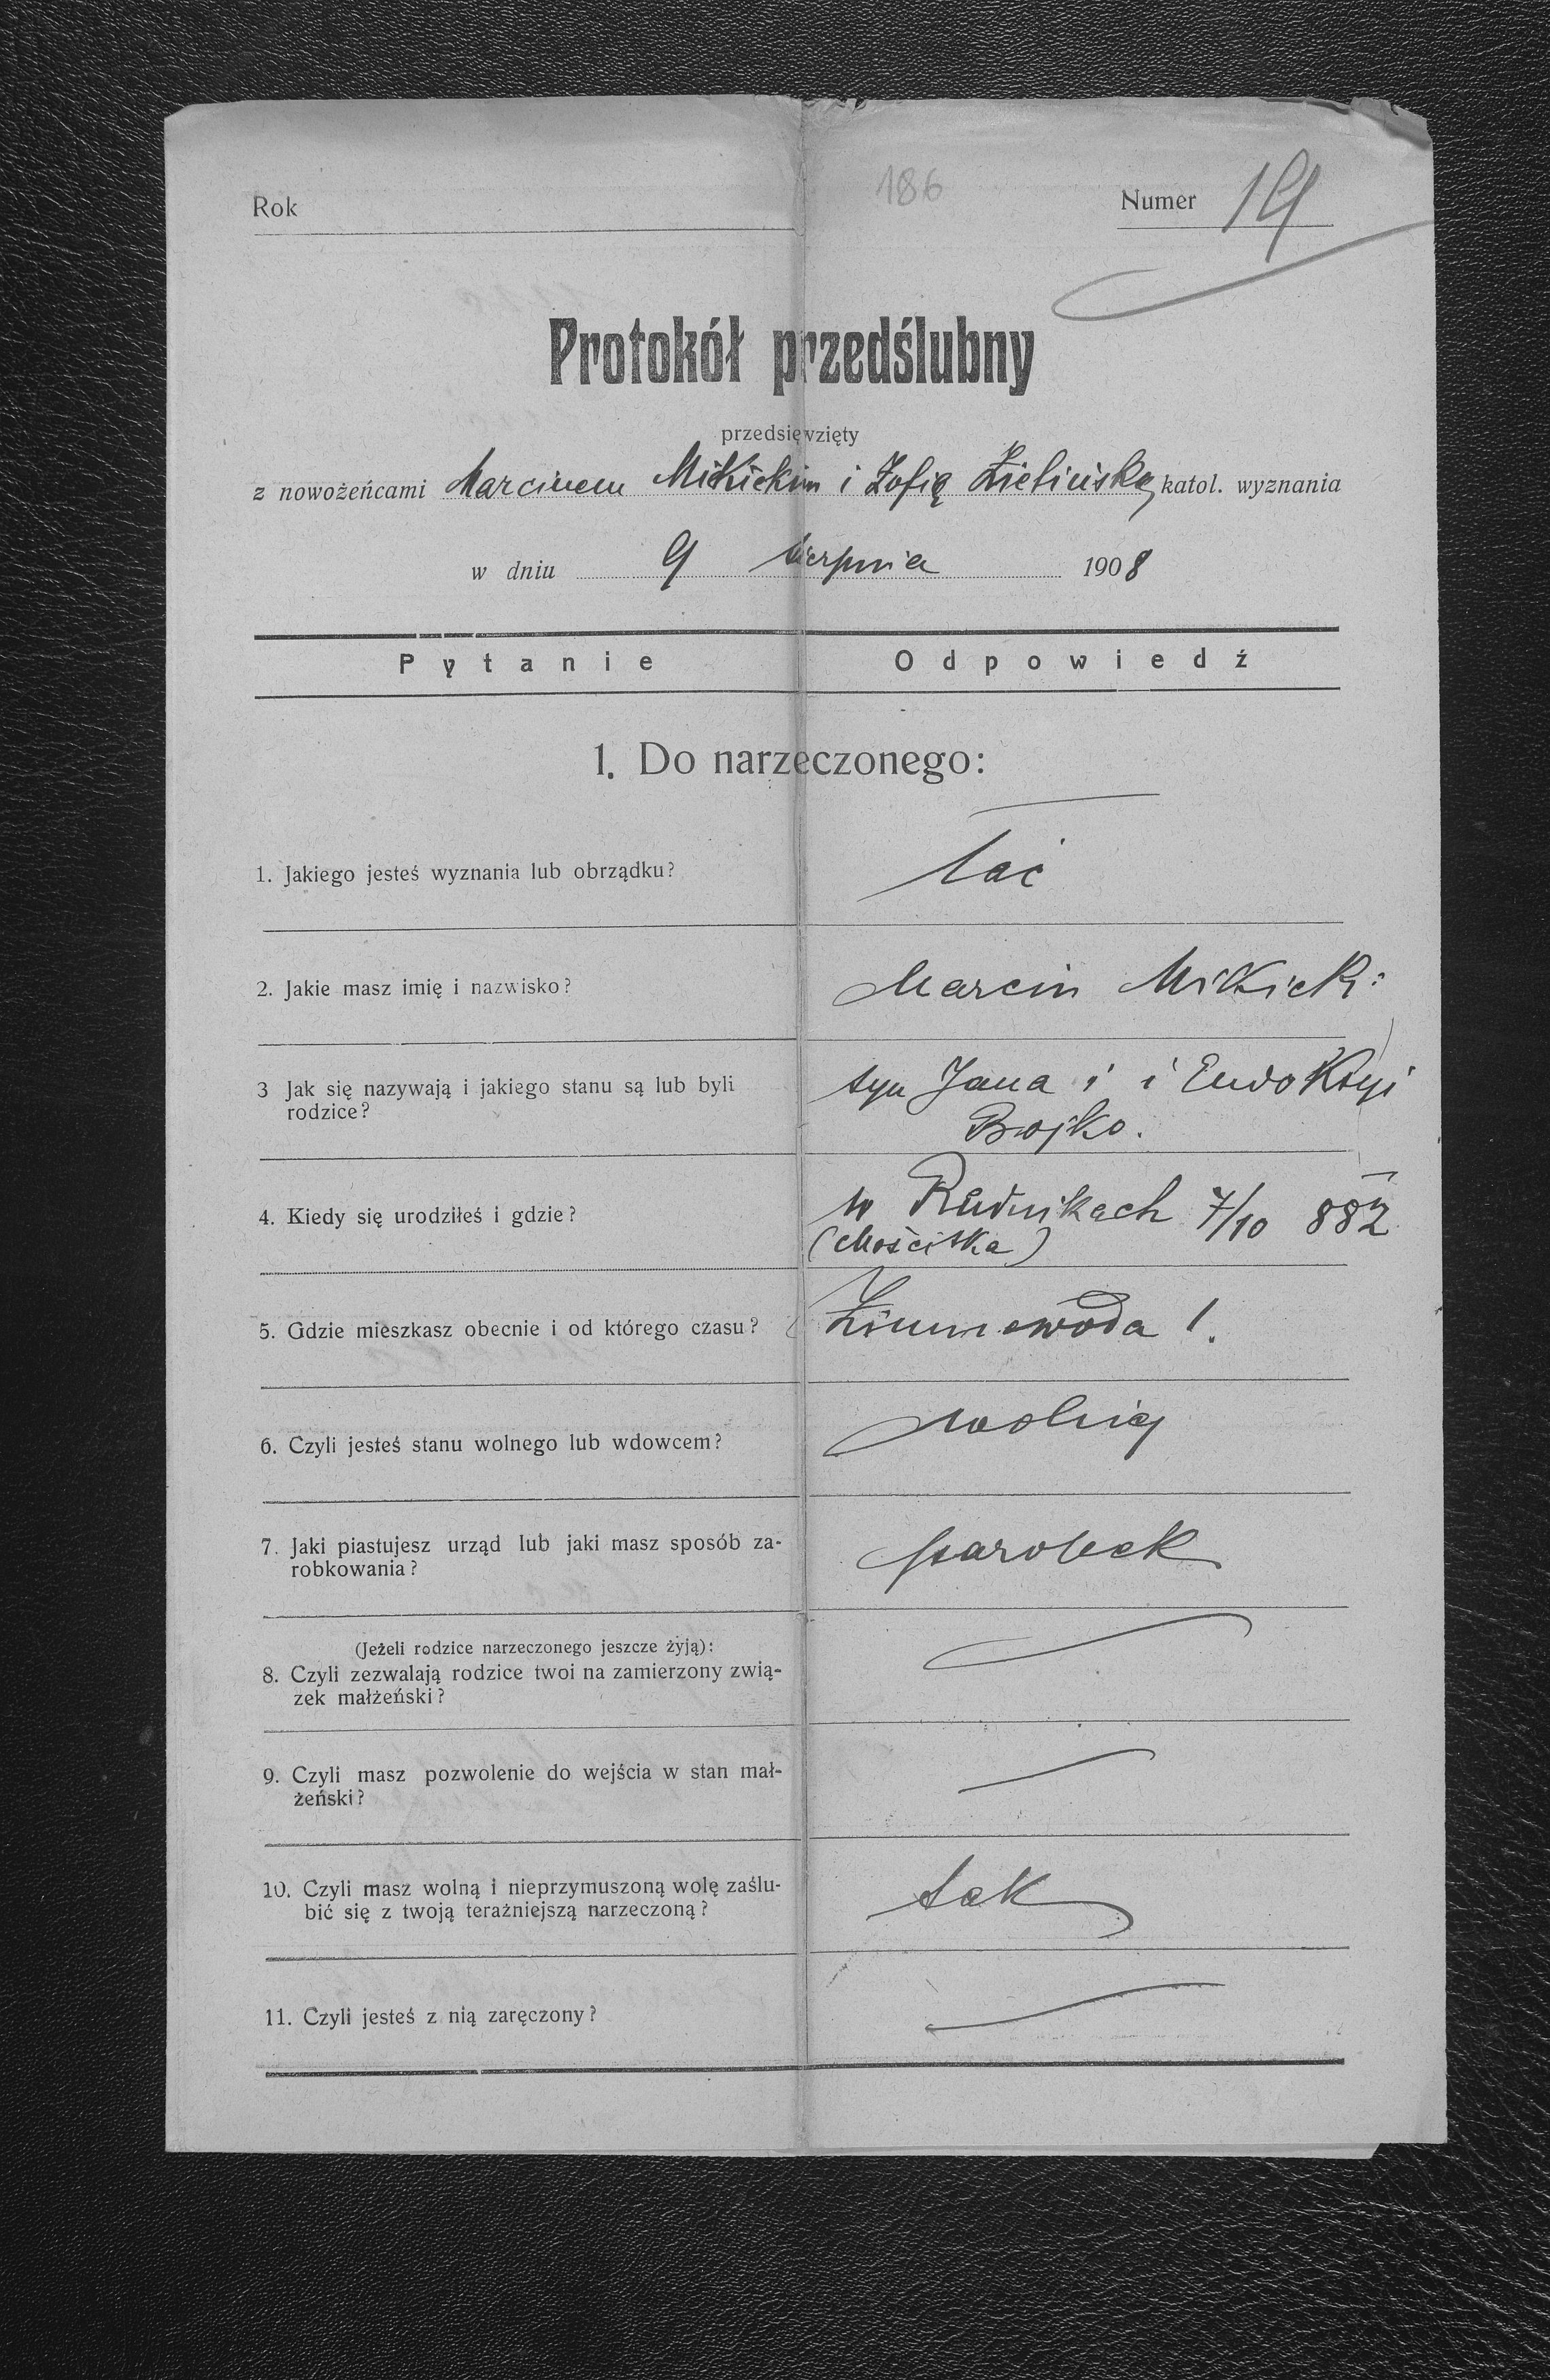 186
Rok
Numer 19
Protokół przedślubny
przedsięwzięty
z nowożeńcami Marcinem Mikickim i Zofią Zielińską katol. wyznania
w dniu 9 sierpnia 1908
Pytanie Odpowiedź
1. Do narzeczonego:
1. Jakiego jesteś wyznania lub obrządku? łać
2. Jakie masz imię i nazwisko? Marcin Mikicki
3 Jak się nazywają i jakiego stanu są lub byli
rodzice?
syn Jana i i Eudoksyi
Bojko.
4. Kiedy się urodziłeś i gdzie? w Rudnikach 7/10 882
(Mościska)
5. Gdzie mieszkasz obecnie i od którego czasu? Zimnawoda 1.
6. Czyli jesteś stanu wolnego lub wdowcem? wolny
7. Jaki piastujesz urząd lub jaki masz sposób za-
robkowania?
parobek
(Jeżeli rodzice narzeczonego jeszcze żyją):
8. Czyli zezwalają rodzice twoi na zamierzony zwią-
zek małżeński?
9. Czyli masz pozwolenie do wejścia w stan mał-
żeński?
10. Czyli masz wolną i nieprzymuszoną wolę zaślu-
bić się z twoją teraźniejszą narzeczoną?
tak
11. Czyli jesteś z nią zaręczony?